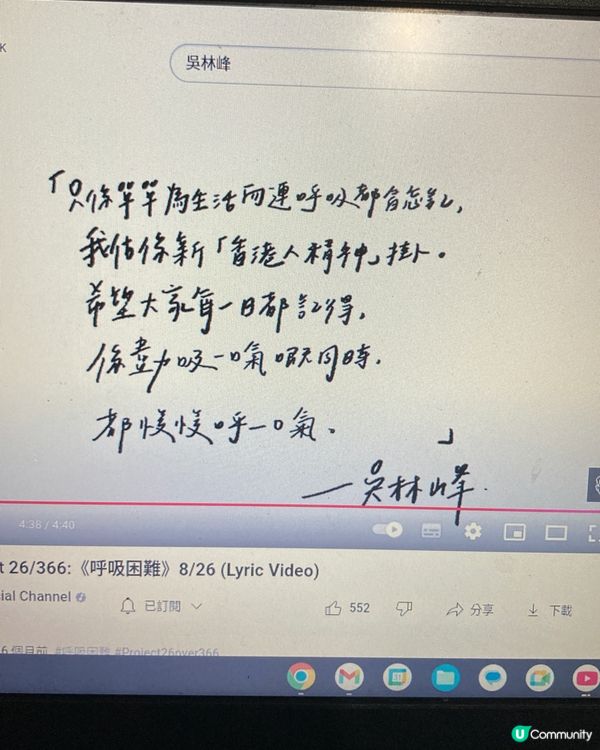 K
吳林峰
「只係單單為生活而連呼吸都會忘記,
我估係新「香港人精神」掛。
希望大家每一日都記得,
係盡力吸一口氣嘅同時,
都慢慢呼一口氣。」
—吳林峰.
4:38 / 4:40
t 26/366:《呼吸困難》8/26 (Lyric Video)
cial Channel 已訂閱 552 分享 下載
6 個月前 #呼吸困難 #Project26over366
U Community